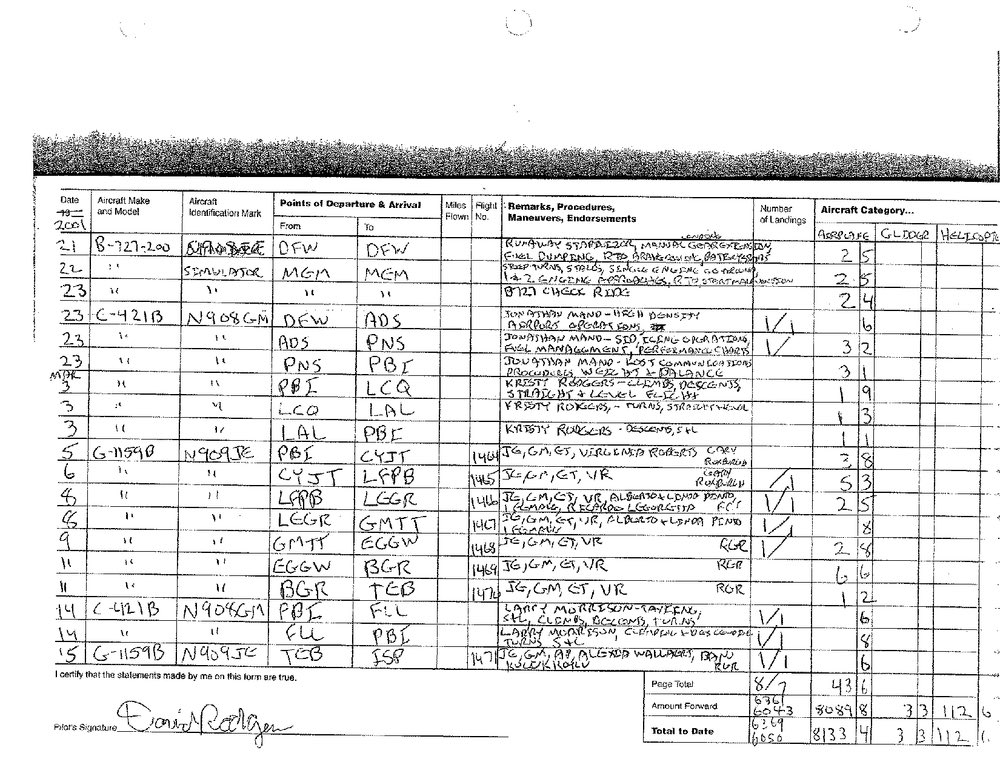 Date Aircraft Make and Model Aircraft Identification Mark Points of Departure & Arrival Miles Flown Flight No. Remarks, Procedures, Maneuvers, Endorsements Number of Landings Aircraft Category...
19 2001 From To AIRPLANE GLIDER HELICOPTE
21 B-727-200 DFW DFW RUNAWAY STABILIZER, MANUAL GEAR EXTENSION, 2 5
FUEL DUMPING, RTO
22 " SIMULATOR MGM MGM STEEP TURNS, STALLS, SINGLE ENGINE GO AROUND, 2 5
1 & 2 ENGINE APPROACHES, RTO START MALFUNCTION
23 " " " " B727 CHECK RIDE 2 4
23 C-421B N908GM DFW ADS JONATHAN MANO - HIGH DENSITY 1/1 6
AIRPORT OPERATIONS,
23 " " ADS PNS JONATHAN MANO - SID, ICING OPERATIONS, 1/ 3 2
FUEL MANAGEMENT, PERFORMANCE CHARTS
23 " " PNS PBI JONATHAN MANO - LOST COMMUNICATIONS 3 1
PROCEDURES, WEIGHT & BALANCE
MAR
3 " " PBI LCQ KRISTY RODGERS - CLIMBS, DESCENTS, 1 9
STRAIGHT & LEVEL FLIGHT
3 " " LCQ LAL KRISTY RODGERS, - TURNS, STRAIGHT & LEVEL 1 3
3 " " LAL PBI KRISTY RODGERS - DESCENTS, S&L 1 1
5 G-1159B N909JE PBI CYJT 1464 JE, GM, ET, VIRGINIA ROBERTS GARY ROXBURGH 3 8
6 " " CYJT LFPB 1465 JE, GM, ET, VR GARY ROXBURGH /1 5 3
8 " " LFPB LEGR 1466 JE, GM, ET, VR, ALBERTO & LINDA PINTO, 1/1 2 5
1 FEMALE, RICARDO LEGORETTA
8 " " LEGR GMTT 1467 JE, GM, ET, VR, ALBERTO & LINDA PINTO 1/1 8
1 FEMALE
9 " " GMTT EGGW 1468 JE, GM, ET, VR RGR 1/ 2 8
11 " " EGGW BGR 1469 JE, GM, ET, VR RGR 6 6
11 " " BGR TEB 1470 JE, GM, ET, VR RGR 1 2
14 C-421B N908GM PBI FLL LARRY MORRISON - TAXIING, 1/1 6
S&L, CLIMBS, DESCENTS, TURNS
14 " " FLL PBI LARRY MORRISON, 1/1 8
TURNS S&L
15 G-1159B N909JE TEB ISP 1471 JE, GM, AP, ALEXIA WALLAERT, BANU 1/1 6
RGR
I certify that the statements made by me on this form are true.
Page Total 8/7 43 6
Amount Forward 6361 6043 8089 8 3 3 112 6
Pilot's Signature David Rodgers
Total to Date 6369 6050 8133 4 3 3 112